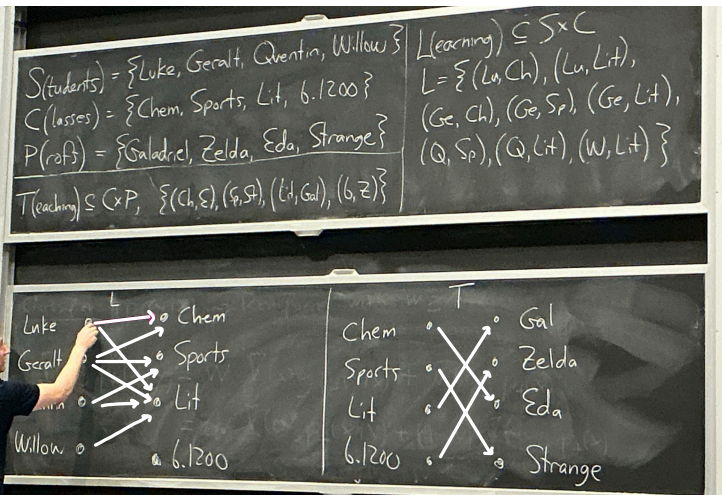 S(tudents) = {Luke, Geralt, Quentin, Willow}
C(lasses) = {Chem, Sports, Lit, 6.1200}
P(rofs) = {Galadriel, Zelda, Eda, Strange}
T(eaching) ⊆ C×P, {(Ch,E),(Sp,St),(Lit,Gal),(6,Z)}
L(earning) ⊆ S×C
L={(Lu,Ch), (Lu,Lit),
(Ge,Ch), (Ge,Sp), (Ge,Lit),
(Q,Sp),(Q,Lit), (W,Lit)}
L
Luke
Geralt
Willow
Chem
Sports
Lit
6.1200
T
Chem
Sports
Lit
6.1200
Gal
Zelda
Eda
Strange